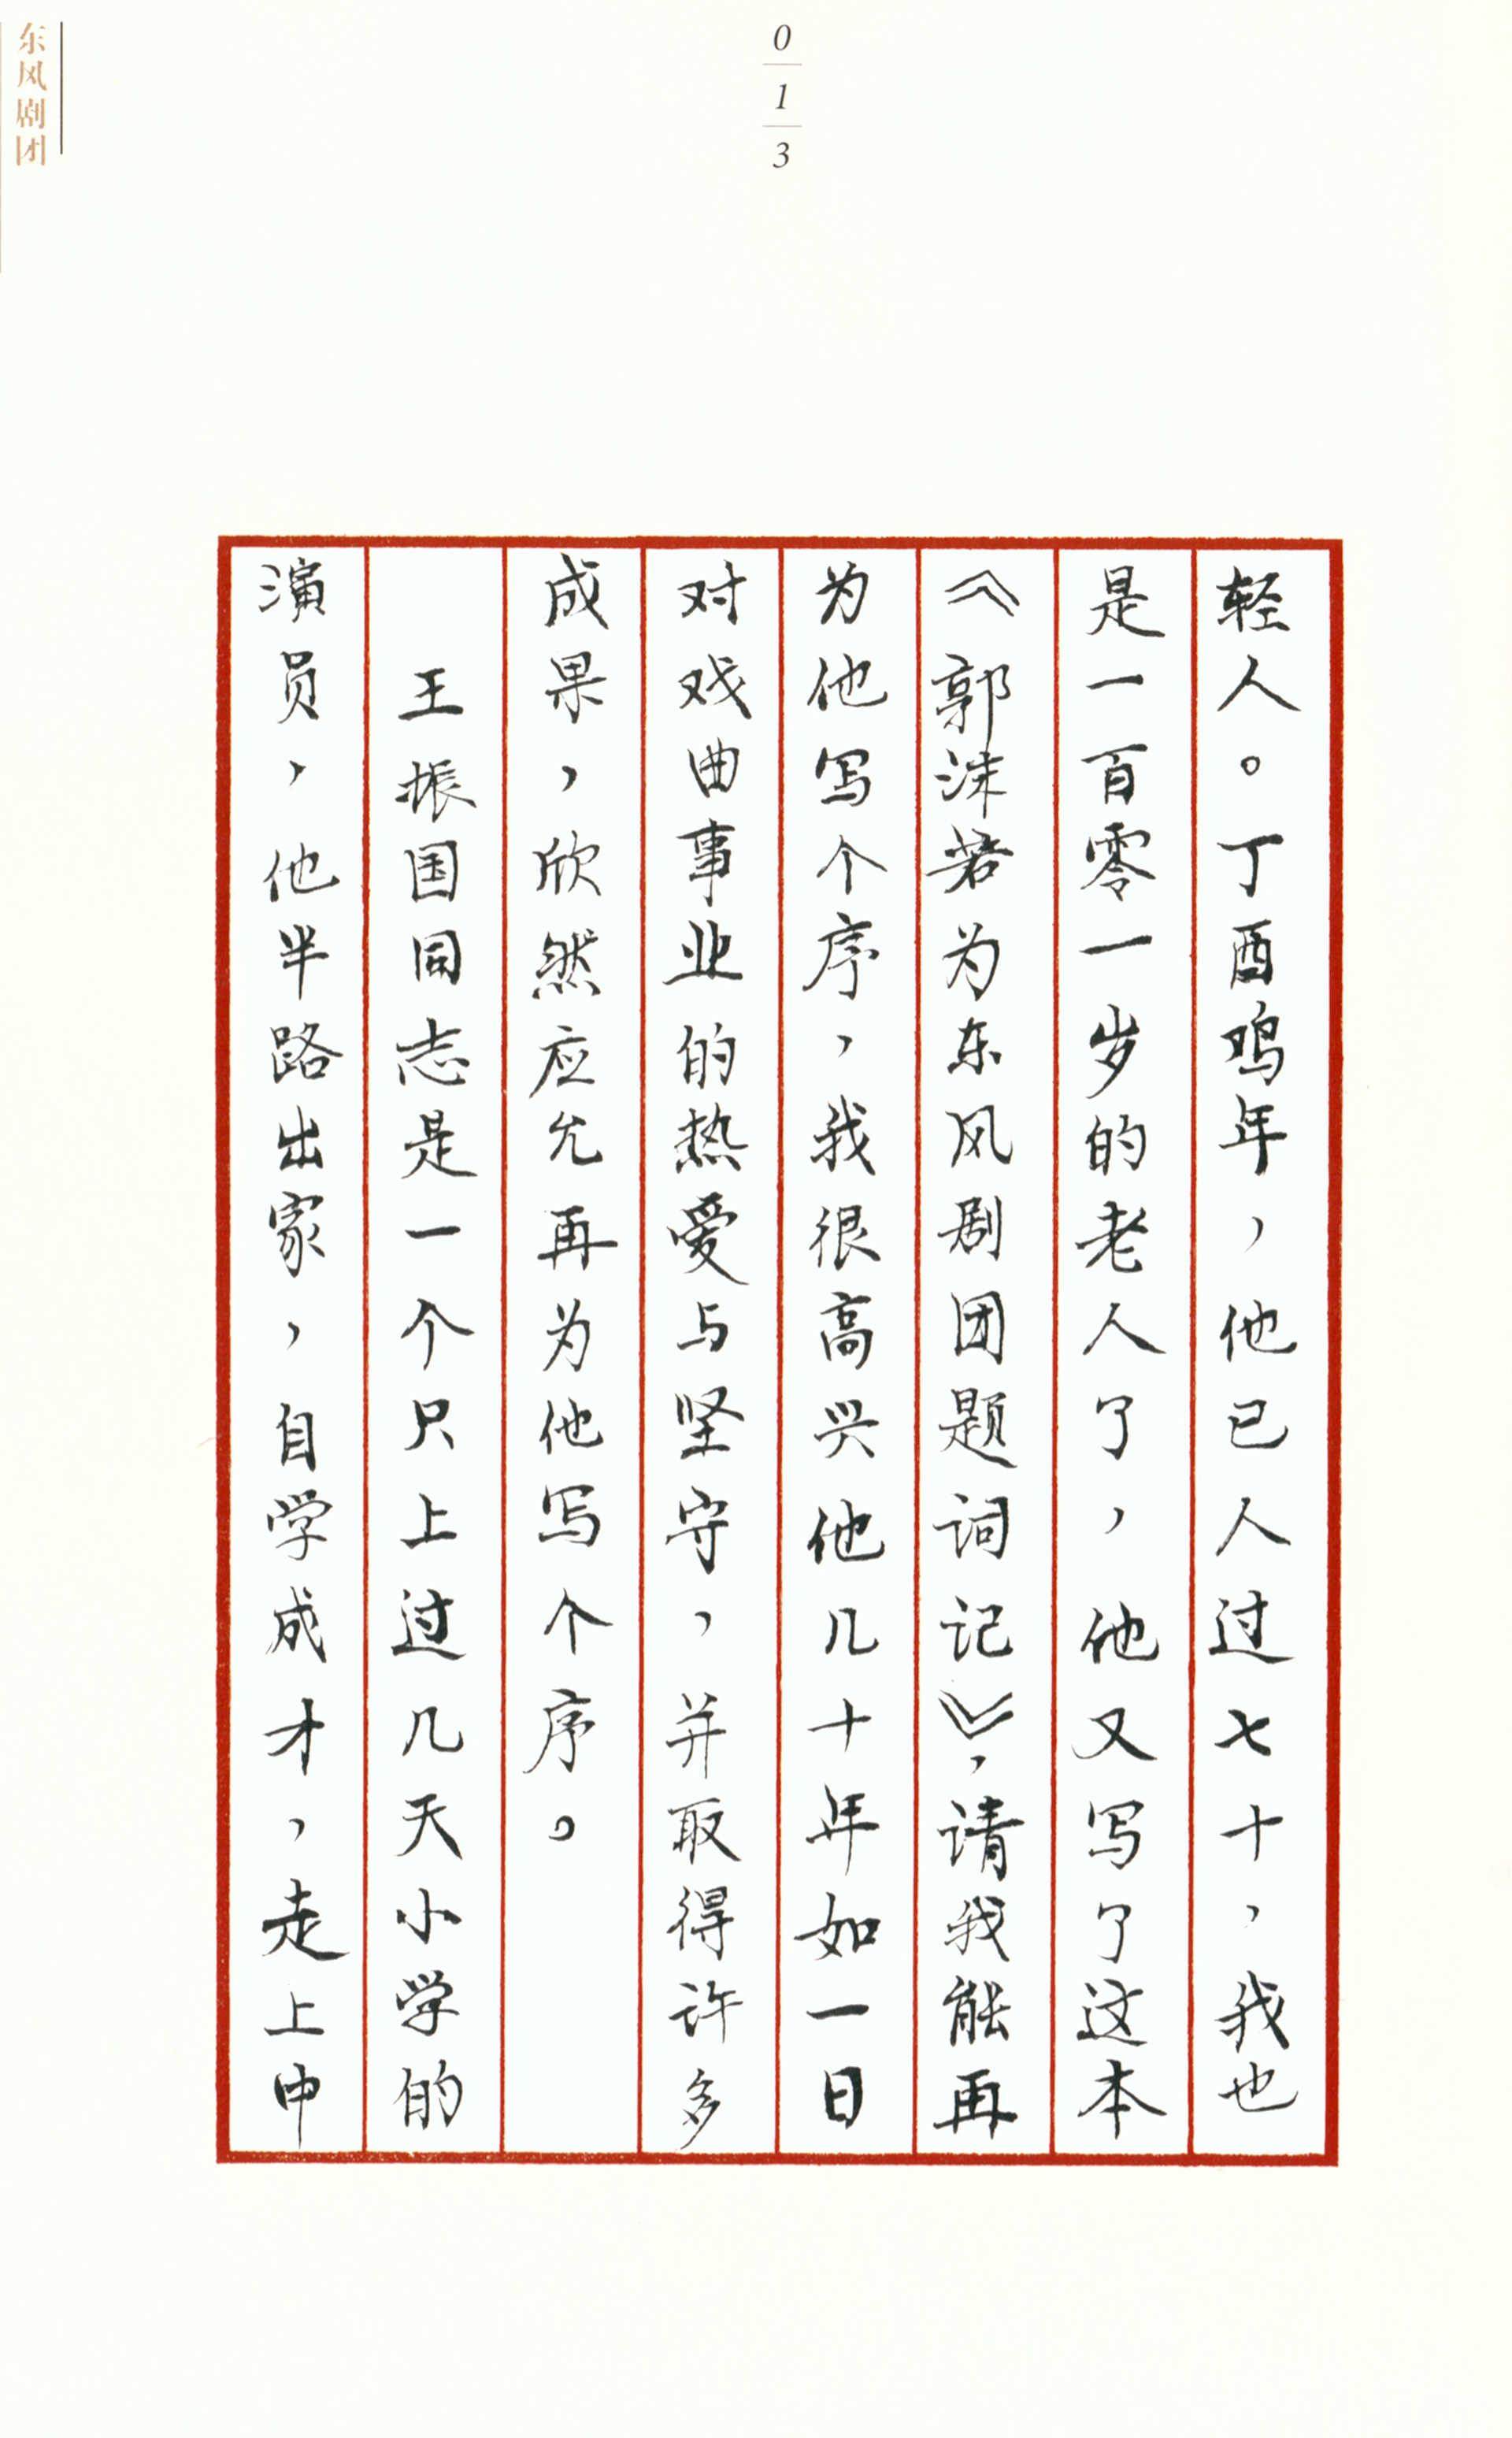 东风剧团
0
1
3
轻人。丁酉鸡年，他已人过七十，我也
是一百零一岁的老人了，他又写了这本
《郭沫若为东风剧团题词记》，请我能再
为他写个序，我很高兴他几十年如一日
对戏曲事业的热爱与坚守，并取得许多
成果，欣然应允再为他写个序。
王振国同志是一个只上过几天小学的
演员，他半路出家，自学成才，走上中